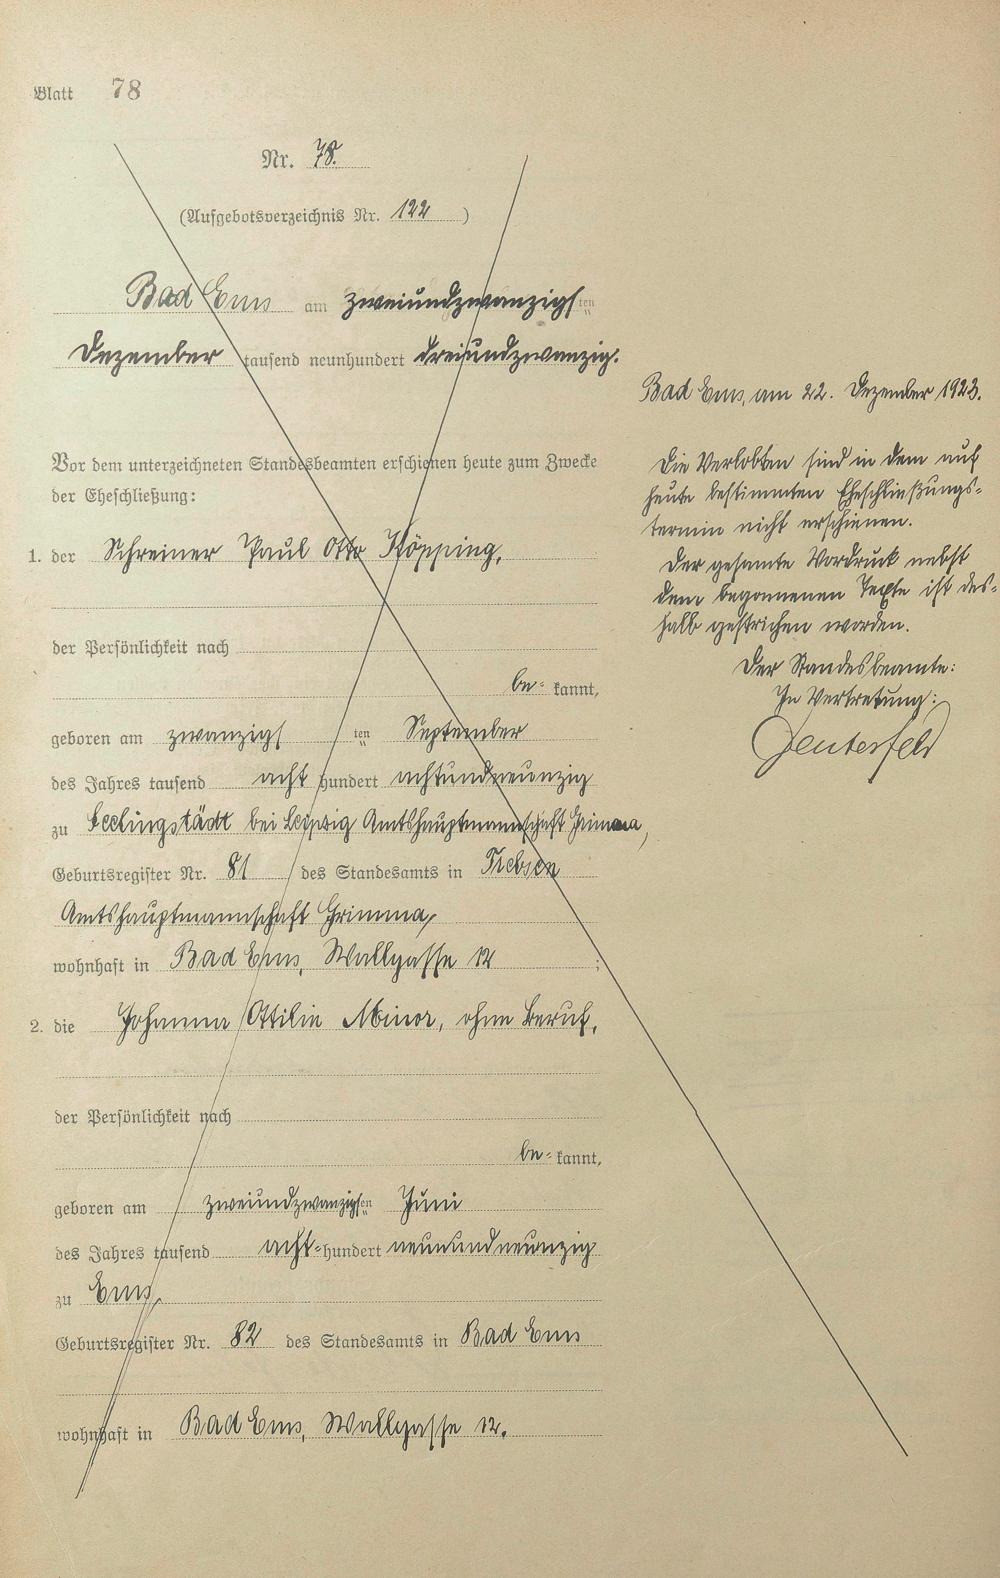 Blatt 78
Nr. 78.
(Aufgebotsverzeichnis Nr. 122)
Bad Ems am zweiundzwanzigsten
Dezember tausend neunhundert dreiundzwanzig.
Vor dem unterzeichneten Standesbeamten erschienen heute zum Zwecke
der Eheschließung:
1. der Schreiner Paul Otto Köpping,
der Persönlichkeit nach
be- kannt,
geboren am zwanzigsten September
des Jahres tausend acht hundert achtundneunzig
zu Seelingstädt bei Leipzig Amtshauptmannschaft Grimma,
Geburtsregister Nr. 81 des Standesamts in Trebsen
Amtshauptmannschaft Grimma,
wohnhaft in Bad Ems, Wallgasse 12 ;
2. die Johanna Ottilie Minor, ohne Beruf,
der Persönlichkeit nach
be- kannt,
geboren am zweiundzwanzigsten Juni
des Jahres tausend acht-hundert neunundneunzig
zu Ems,
Geburtsregister Nr. 82 des Standesamts in Bad Ems
wohnhaft in Bad Ems, Wallgasse 12.
Bad Ems, am 22. Dezember 1923.
Die Verlobten sind in dem auf
heute bestimmten Eheschließungs-
termin nicht erschienen.
Der gesamte Vordruck nebst
dem begonnenen Texte ist des-
halb gestrichen worden.
Der Standesbeamte:
In Vertretung: